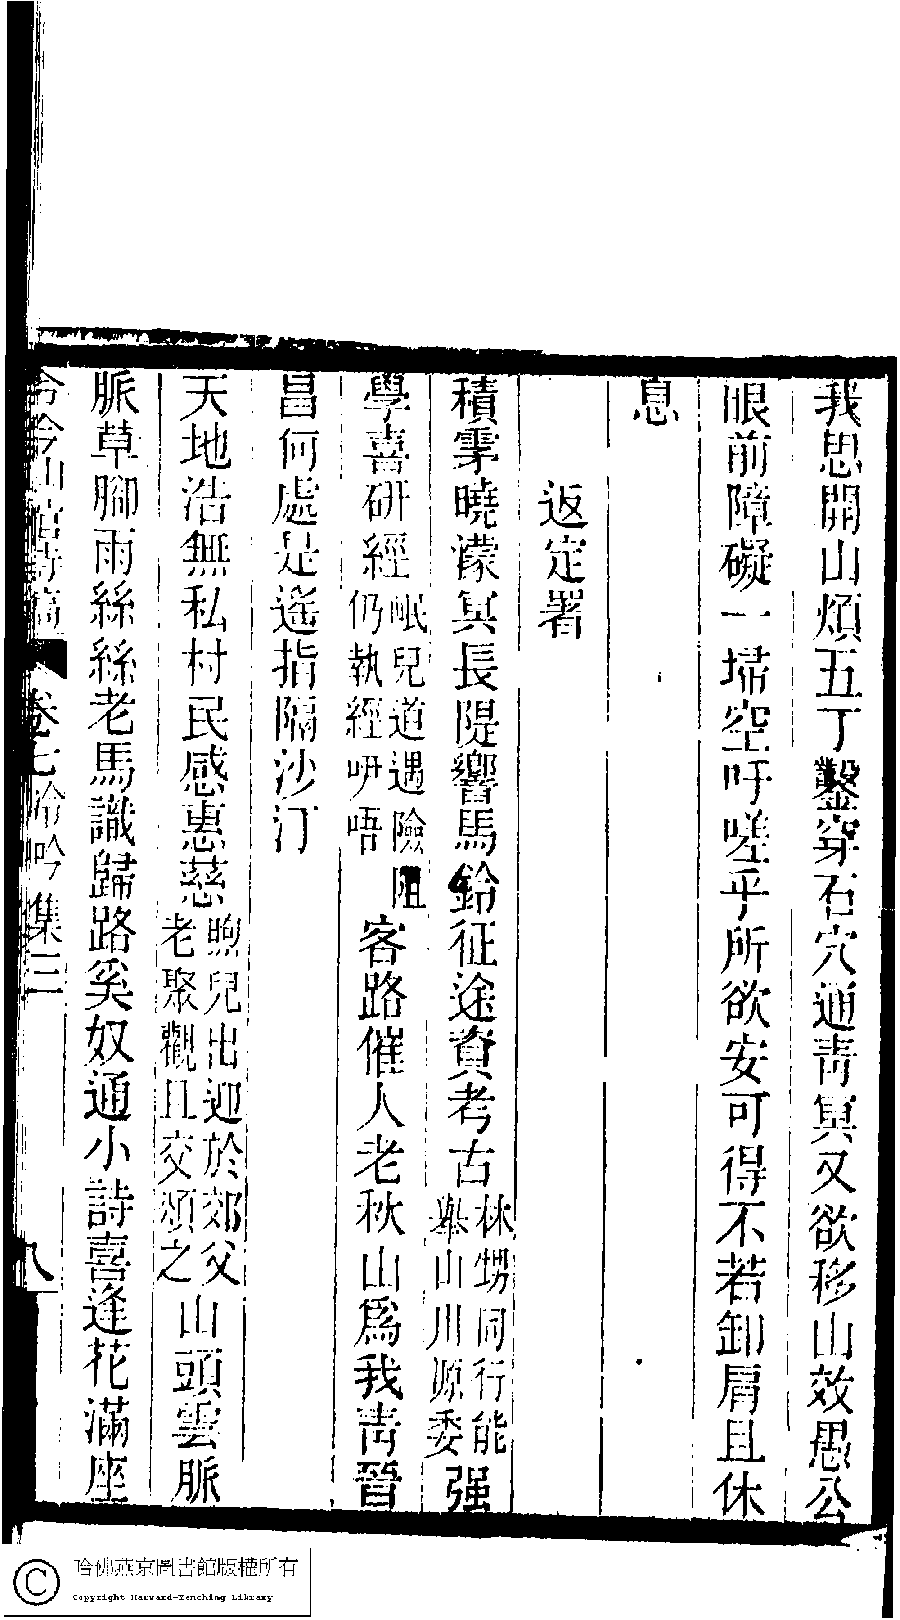 我思開山煩五丁鑿穿石穴通靑冥又欲移山效愚公
眼前障礙一埽空吁嗟乎所欲安可得不若卸肩且休
息
返定署
積霂曉濛冥長隄響馬鈴征途資考古林甥同行能舉山川源委强
學喜硏經岷兒道遇險阻仍執經吚唔客路催人老秋山爲我靑晉
昌何處是遙指隔沙汀
天地浩無私村民感惠慈煦兒出迎於郊父老聚觀且交頌之山頭雲脈
脈草腳雨絲絲老馬識歸路奚奴通小詩喜逢花滿座
泠吟山館詩稿 卷七泠吟集三 八
哈佛燕京圖書館版權所有
Copyright Harvard-Yenching Library